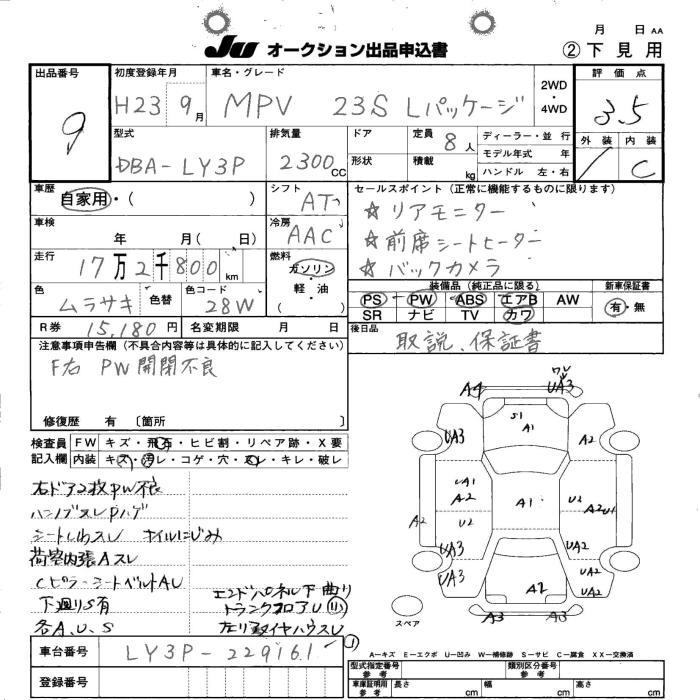 月 日 AA
JU オークション出品申込書 ② 下見用
出品番号 初度登録年月 車名・グレード 2WD・4WD 評価点
9 H23 9月 MPV 23S Lパッケージ 3.5
型式 排気量 ドア 定員 8人 ディーラー・並行 外装 内装
DBA-LY3P 2300CC 形状 積載 kg モデル年式 年 C
ハンドル 左・右
車歴 シフト セールスポイント(正常に機能するものに限ります)
自家用・( ) AT ☆リアモニター
車検 冷房 ☆前席シートヒーター
年 月( 日) AAC ☆バックカメラ
走行 燃料 装備品(純正品に限る) 新車保証書
17万2千800km ガソリン・軽油( ) PS PW ABS エアB AW 有・無
色 色替 色コード SR ナビ TV カワ
ムラサキ 28W 後日品
R券 15,180円 名変期限 月 日 取説、保証書
注意事項申告欄(不具合内容等は具体的に記入してください)
F右 PW開閉不良
修復歴 有 〔箇所
検査員記入欄 FW キズ・飛石・ヒビ割・リペア跡・X要
内装 キズ・汚レ・コゲ・穴・スレ・キレ・破レ
右ドア2枚PW不良
シートしわスレ オイルにじみ
荷室内張Aスレ
CピラーシートベルトAU
下廻りS有
各A、U、S
エンドパネル下曲り
トランクフロアU
A4 UA3
S1 A1
UA3 A2
UA1 A2 A1 U2
A2 U2 A2 U1
UA3 UA2
UA3 A2 UA2
A3 A3
スペア
A―キズ E―エクボ U―凹み W―補修跡 S―サビ C―腐食 XX―交換済
車台番号 LY3P-229161
型式指定番号 類別区分番号
登録番号 車庫証明用参考 長さ cm 幅 cm 高さ cm